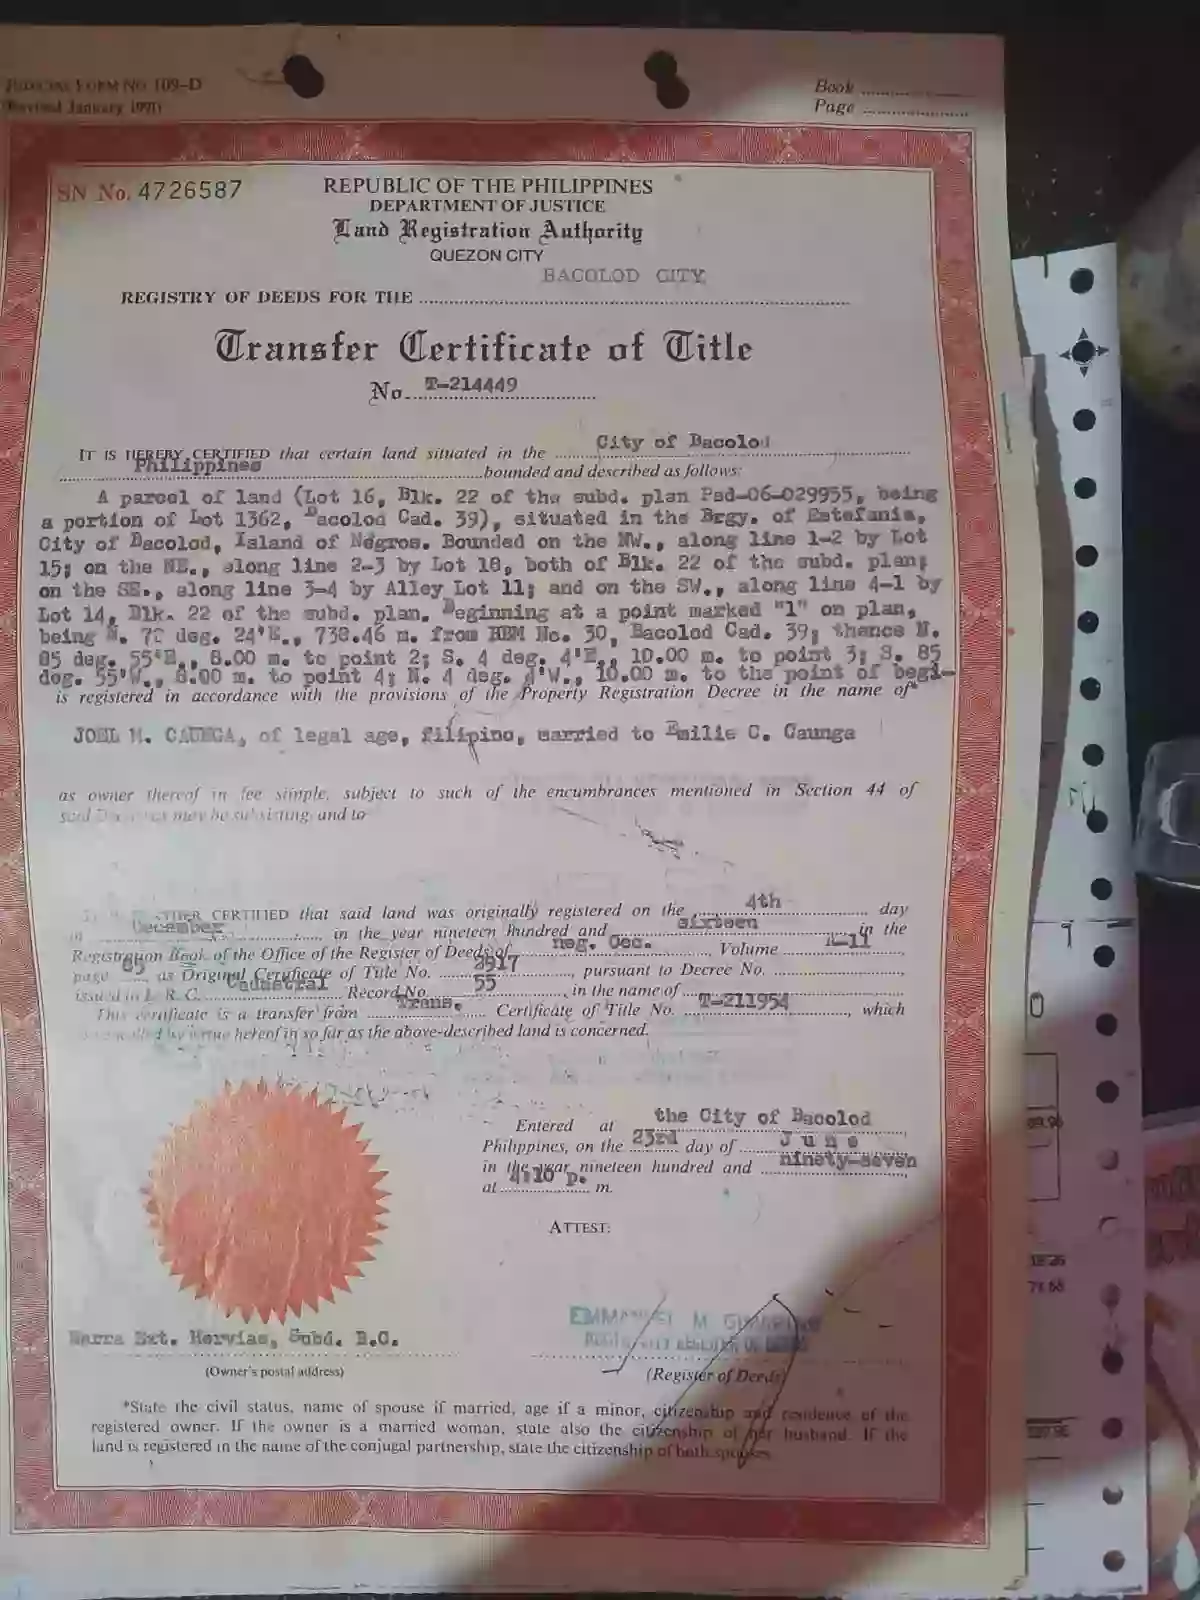 JUDICIAL FORM NO. 109-D
(Revised January 1991)
Book
Page
SN No. 4726587
REPUBLIC OF THE PHILIPPINES
DEPARTMENT OF JUSTICE
Land Registration Authority
QUEZON CITY
BACOLOD CITY
REGISTRY OF DEEDS FOR THE
Transfer Certificate of Title
No. T-214449
IT IS HEREBY CERTIFIED that certain land situated in the City of Bacolod
Philippines bounded and described as follows:
A parcel of land (Lot 16, Blk. 22 of the subd. plan Psd-06-029955, being
a portion of Lot 1362, Bacolod Cad. 39), situated in the Brgy. of Estefania,
City of Bacolod, Island of Negros. Bounded on the NW., along line 1-2 by Lot
15; on the NE., along line 2-3 by Lot 18, both of Blk. 22 of the subd. plan;
on the SE., along line 3-4 by Alley Lot 11; and on the SW., along line 4-1 by
Lot 14, Blk. 22 of the subd. plan. Beginning at a point marked "1" on plan,
being N. 72 deg. 24'E., 738.46 m. from BBM No. 30, Bacolod Cad. 39; thence N.
85 deg. 55'E., 8.00 m. to point 2; S. 4 deg. 4'E., 10.00 m. to point 3; S. 85
deg. 55'W., 8.00 m. to point 4; N. 4 deg. 4'W., 10.00 m. to the point of begi-
is registered in accordance with the provisions of the Property Registration Decree in the name of*
JOEL M. CAUNGA, of legal age, filipino, married to Emilie C. Caunga
as owner thereof in fee simple, subject to such of the encumbrances mentioned in Section 44 of
said may be subsisting, and to
CERTIFIED that said land was originally registered on the 4th day
December in the year nineteen hundred and sixteen in the
Registration Book of the Office of the Register of Deeds of neg. Occ. Volume
page 85 as Original Certificate of Title No. 2917, pursuant to Decree No.
issued in L. R. C. Cadastral Record No. 55, in the name of
This certificate is a transfer from Trans. Certificate of Title No. T-211954, which
hereof in so far as the above-described land is concerned.
Entered at the City of Bacolod
Philippines, on the 23rd day of June
in the year nineteen hundred and ninety-seven
at 4:10 p. m.
ATTEST:
EMMANUEL M.
Narra Ext. Hervias, Subd. B.C.
(Owner's postal address)
(Register of Deeds)
*State the civil status, name of spouse if married, age if a minor, citizenship and residence of the
registered owner. If the owner is a married woman, state also the citizenship of her husband. If the
land is registered in the name of the conjugal partnership, state the citizenship of both spouses.